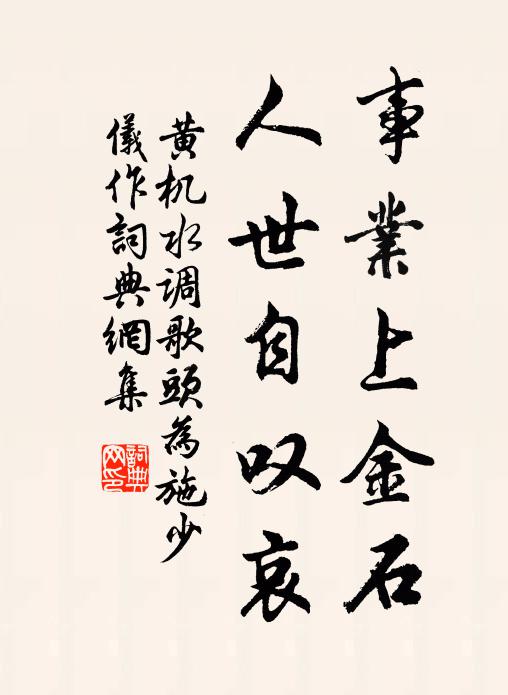 事業上金石
人世自叹哀
黄机水调歌頭為施少
儀作詞典網集
詞典网印